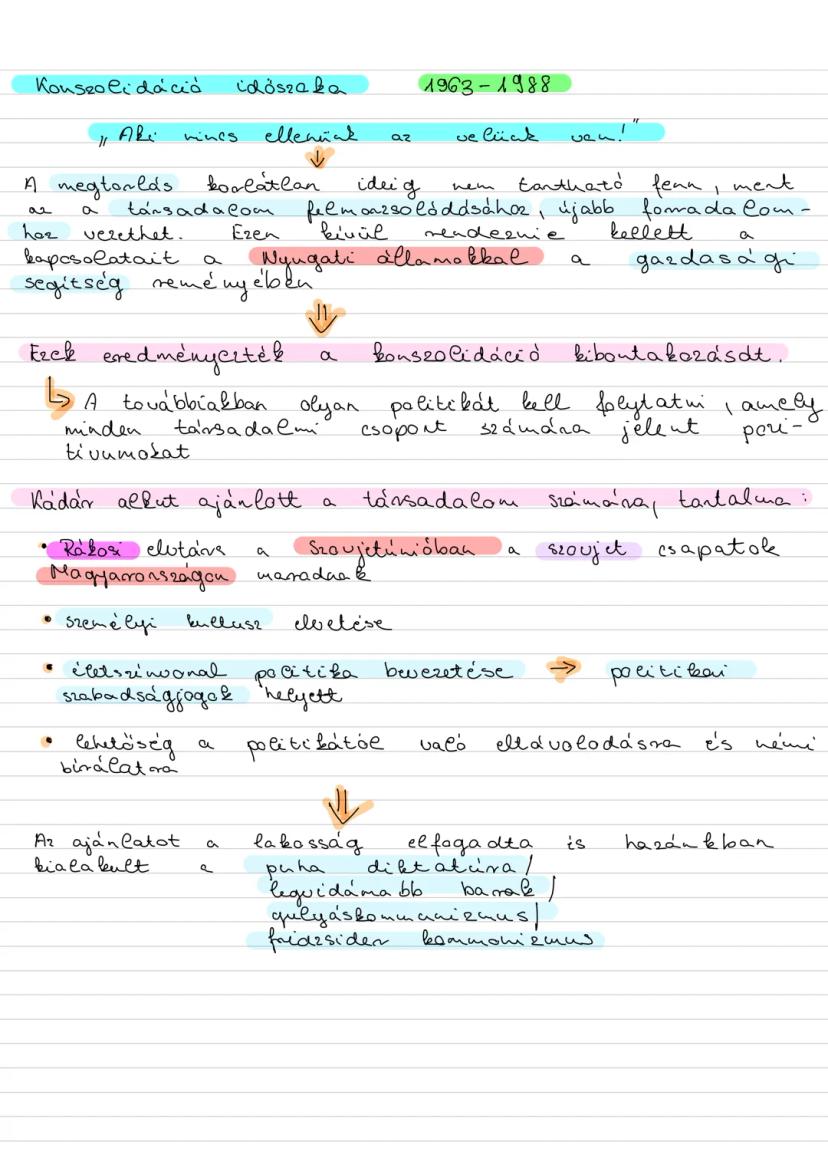 Konszolidáció időszaka 1963-1988
„Aki nincs ellenünk az velünk van!"
A megtorlás korlátlan ideig nem tartható fenn, mert
az a társadalom felmorzsolódásához, újabb forradalom-
hoz vezethet. Ezen kívül rendeznie kellett a
kapcsolatait a Nyugati államokkal a gazdasági
segítség reményében
Ezek eredményezték a konszolidáció kibontakozását.
A továbbiakban olyan politikát kell folytatni, amely
minden társadalmi csoport számára jelent pozi-
tívumokat
Kádár alkut ajánlott a társadalom számára, tartalma:
• Rákosi élettára a Szovjetúnióban a szovjet csapatok
Magyarországon maradnak
• személyi kultusz elvetése
• életszínvonal politika bevezetése → politikai
szabadságjogok helyett
• lehetőség a politikától való eltávolodásra és némi
bírálatra
Az ajánlatot a lakosság elfogadta és hazánkban
kialakult a puha diktatúra/
legvidámabb barak/
gulyáskommunizmus/
fridzsider kommonizmus